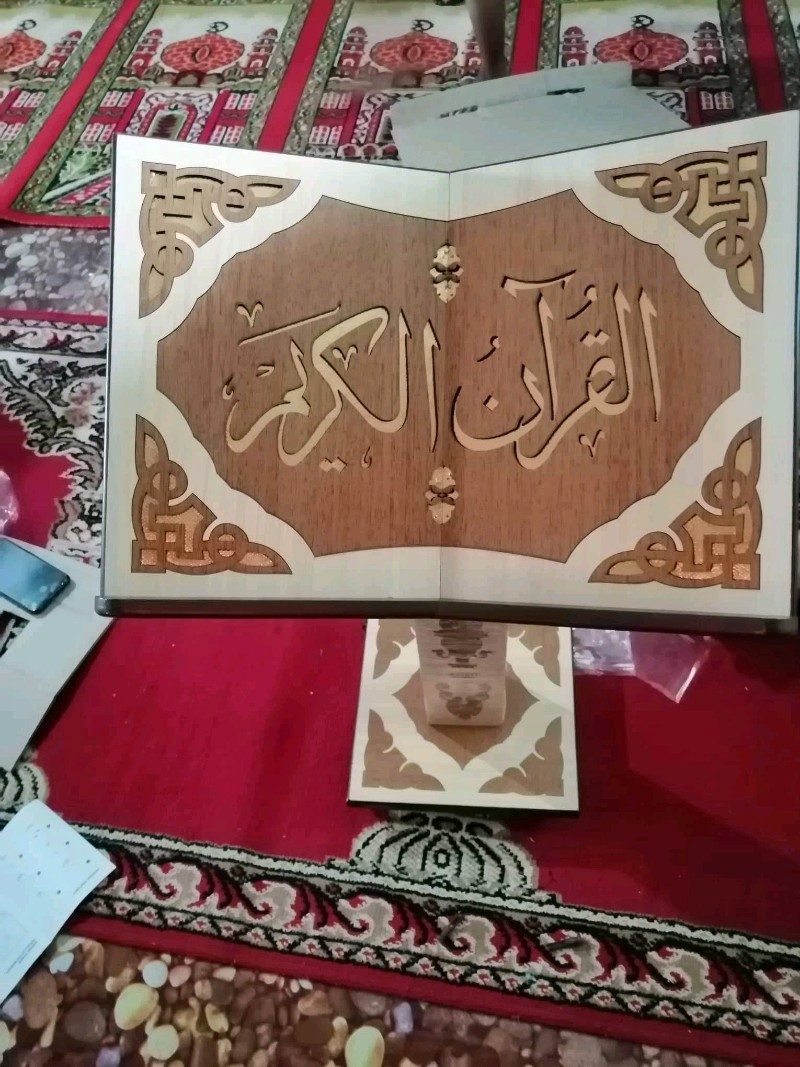 القُرآنُ الكريم